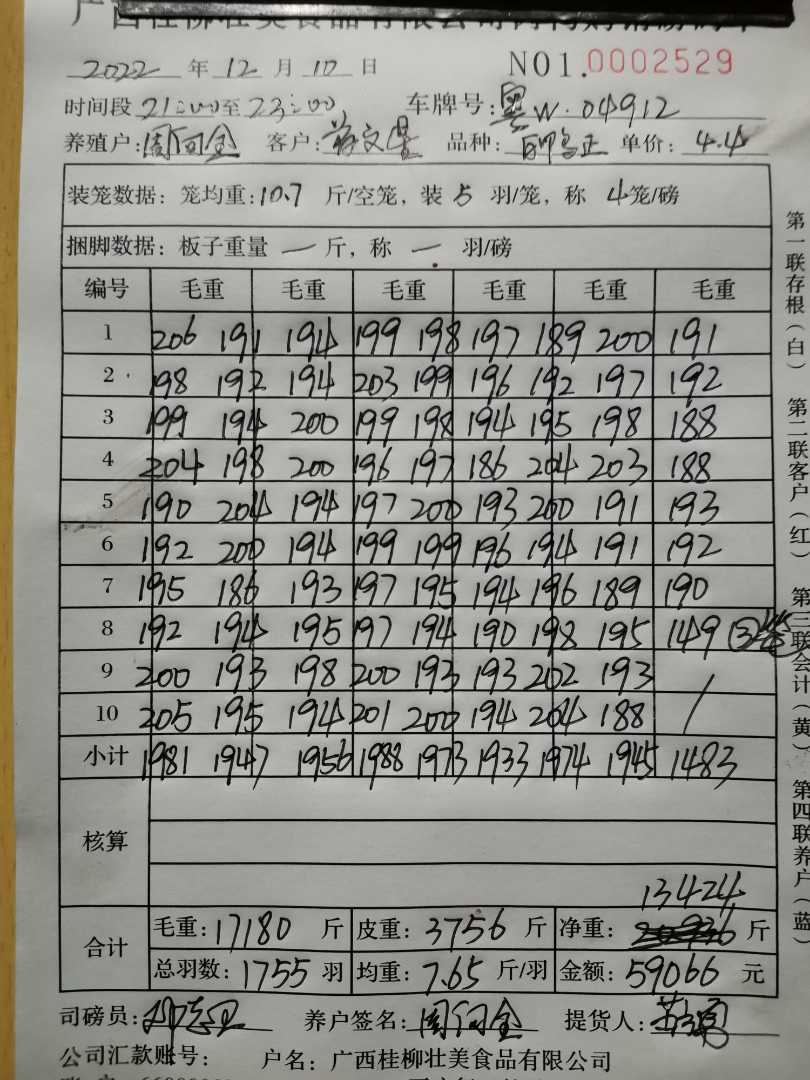 广西桂柳壮美食品有限公司
2022 年 12 月 10 日 NO1.0002529
时间段 21:00至 23:00 车牌号: 粤W·04912
养殖户: 周何金 客户: 品种: 单价: 4.4
装笼数据: 笼均重:10.7 斤/空笼, 装 5 羽/笼, 称 4笼/磅
捆脚数据: 板子重量 一 斤, 称 一 羽/磅
编号 毛重 毛重 毛重 毛重 毛重 毛重
1 206 191 194 199 198 197 189 200 191
2 198 192 194 203 199 196 192 197 192
3 199 194 200 199 198 194 195 198 188
4 204 198 200 196 197 186 204 203 188
5 190 204 194 197 200 193 200 191 193
6 192 200 194 199 199 196 194 191 192
7 195 186 193 197 195 194 196 189 190
8 192 194 195 197 194 190 198 195 149 ③笼
9 200 193 198 200 193 193 202 193
10 205 195 194 201 200 194 204 188 /
小计 1981 1947 1956 1988 1973 1933 1974 1945 1483
核算
13424
合计 毛重: 17180 斤 皮重: 3756 斤 净重: 斤
总羽数: 1755 羽 均重: 7.65 斤/羽 金额: 59066 元
司磅员: 养户签名: 周何金 提货人:
公司汇款账号: 户名: 广西桂柳壮美食品有限公司
第一联存根(白) 第二联客户(红) 第三联会计(黄) 第四联养户(蓝)